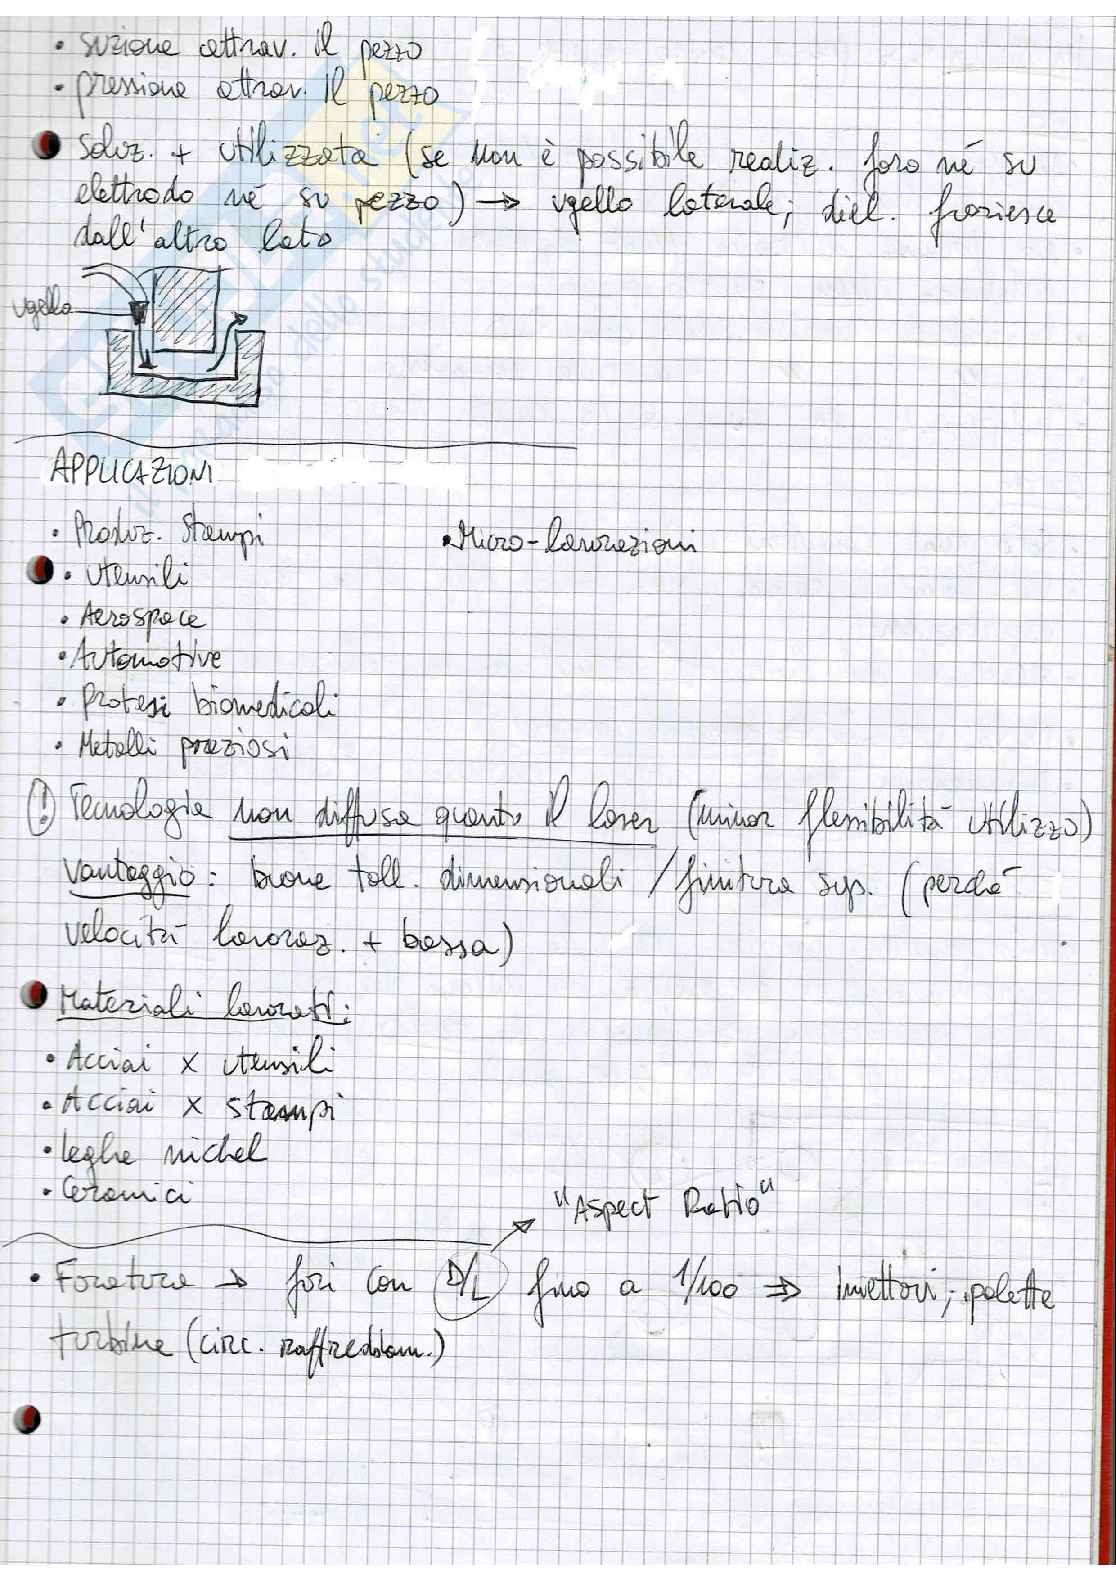 • suzione attrav. il pezzo
• pressione attrav. il pezzo
Soluz. + utilizzata (se non è possibile realiz. foro né su
elettrodo né su pezzo) → ugello laterale; diel. fuoriesce
dall'altro lato
ugello
APPLICAZIONI
• Produz. Stampi • Micro-lavorazioni
• Utensili
• Aerospace
• Automotive
• Protesi biomedicali
• Metalli preziosi
! Tecnologia non diffusa quanto il laser (minor flessibilità utilizzo)
Vantaggio: buone toll. dimensionali / finitura sup. (perché
velocità lavoraz. + bassa)
Materiali lavorati:
• Acciai x utensili
• Acciai x stampi
• leghe nichel
• Ceramici
"Aspect Ratio"
• Foratura → fori con D/L fino a 1/100 ⇒ iniettori, palette
turbine (circ. raffreddam.)